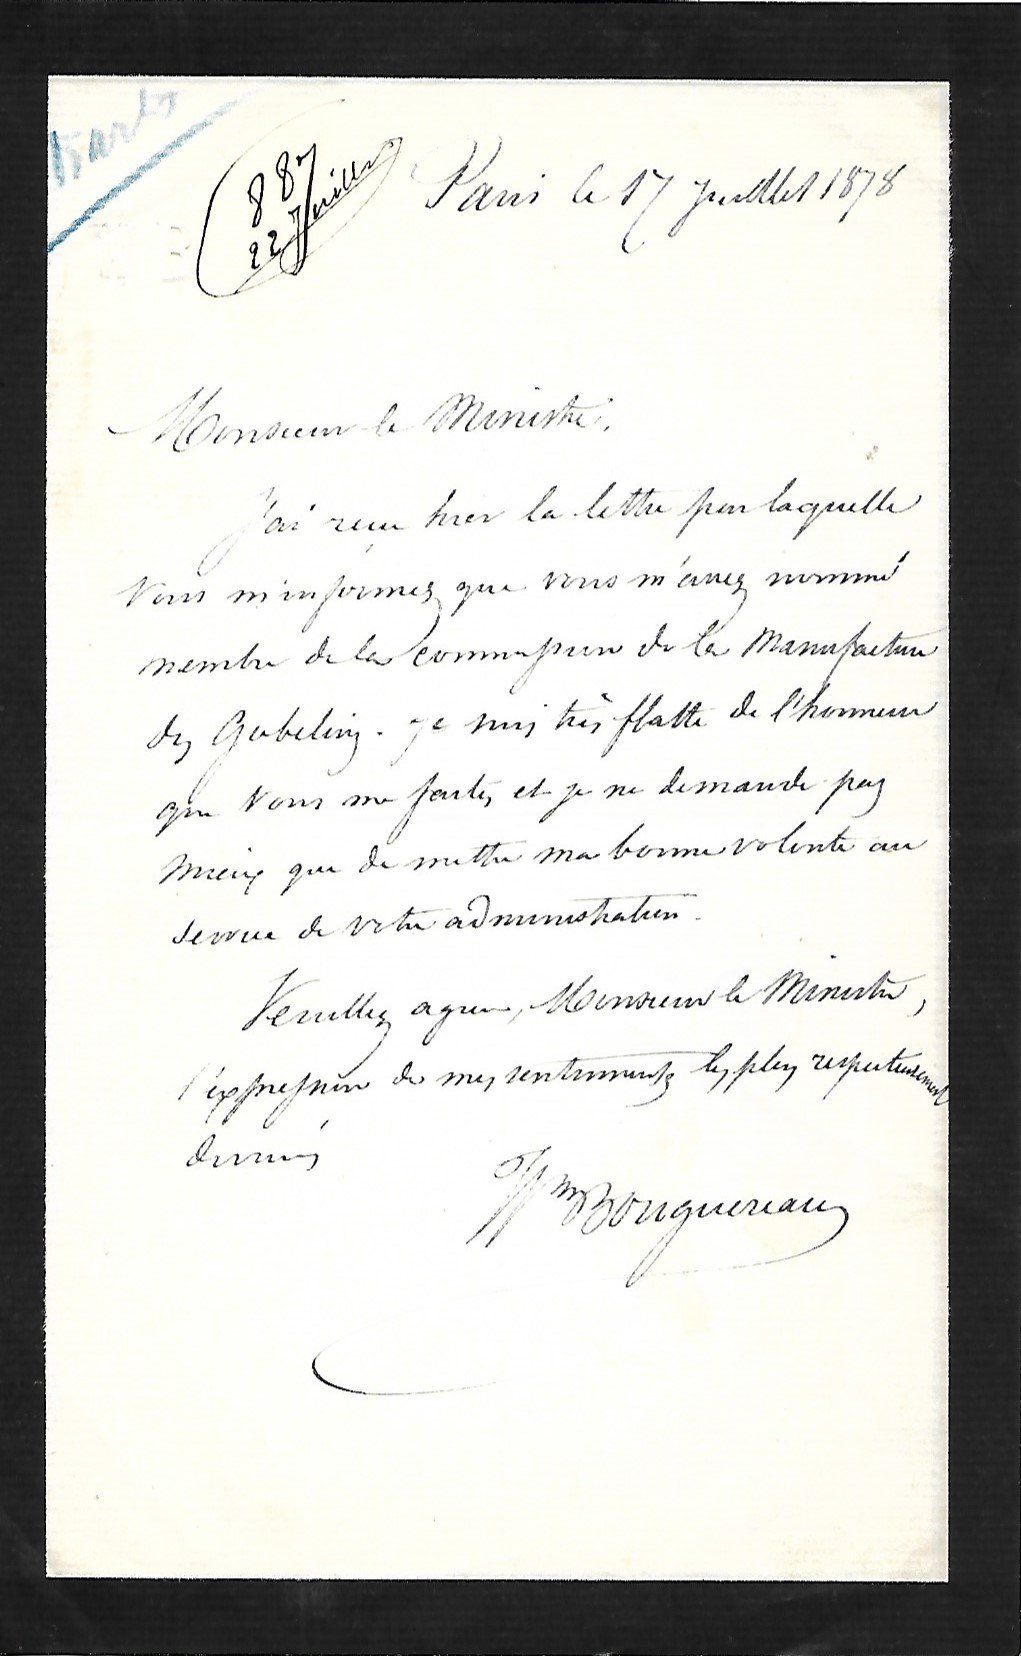 Bx arts
887
22 Juillet
Paris le 17 Juillet 1878
Monsieur le Ministre,
J'ai reçu hier la lettre par laquelle
Vous m'informez que vous m'avez nommé
membre de la commission de la Manufacture
des Gobelins. Je suis très flatté de l'honneur
que Vous me faites, et je ne demande pas
mieux que de mettre ma bonne volonté au
service de votre administration.
Veuillez agréer, Monsieur le Ministre,
l'expression de mes sentiments les plus respectueusement
dévoués
Wm Bouguereau